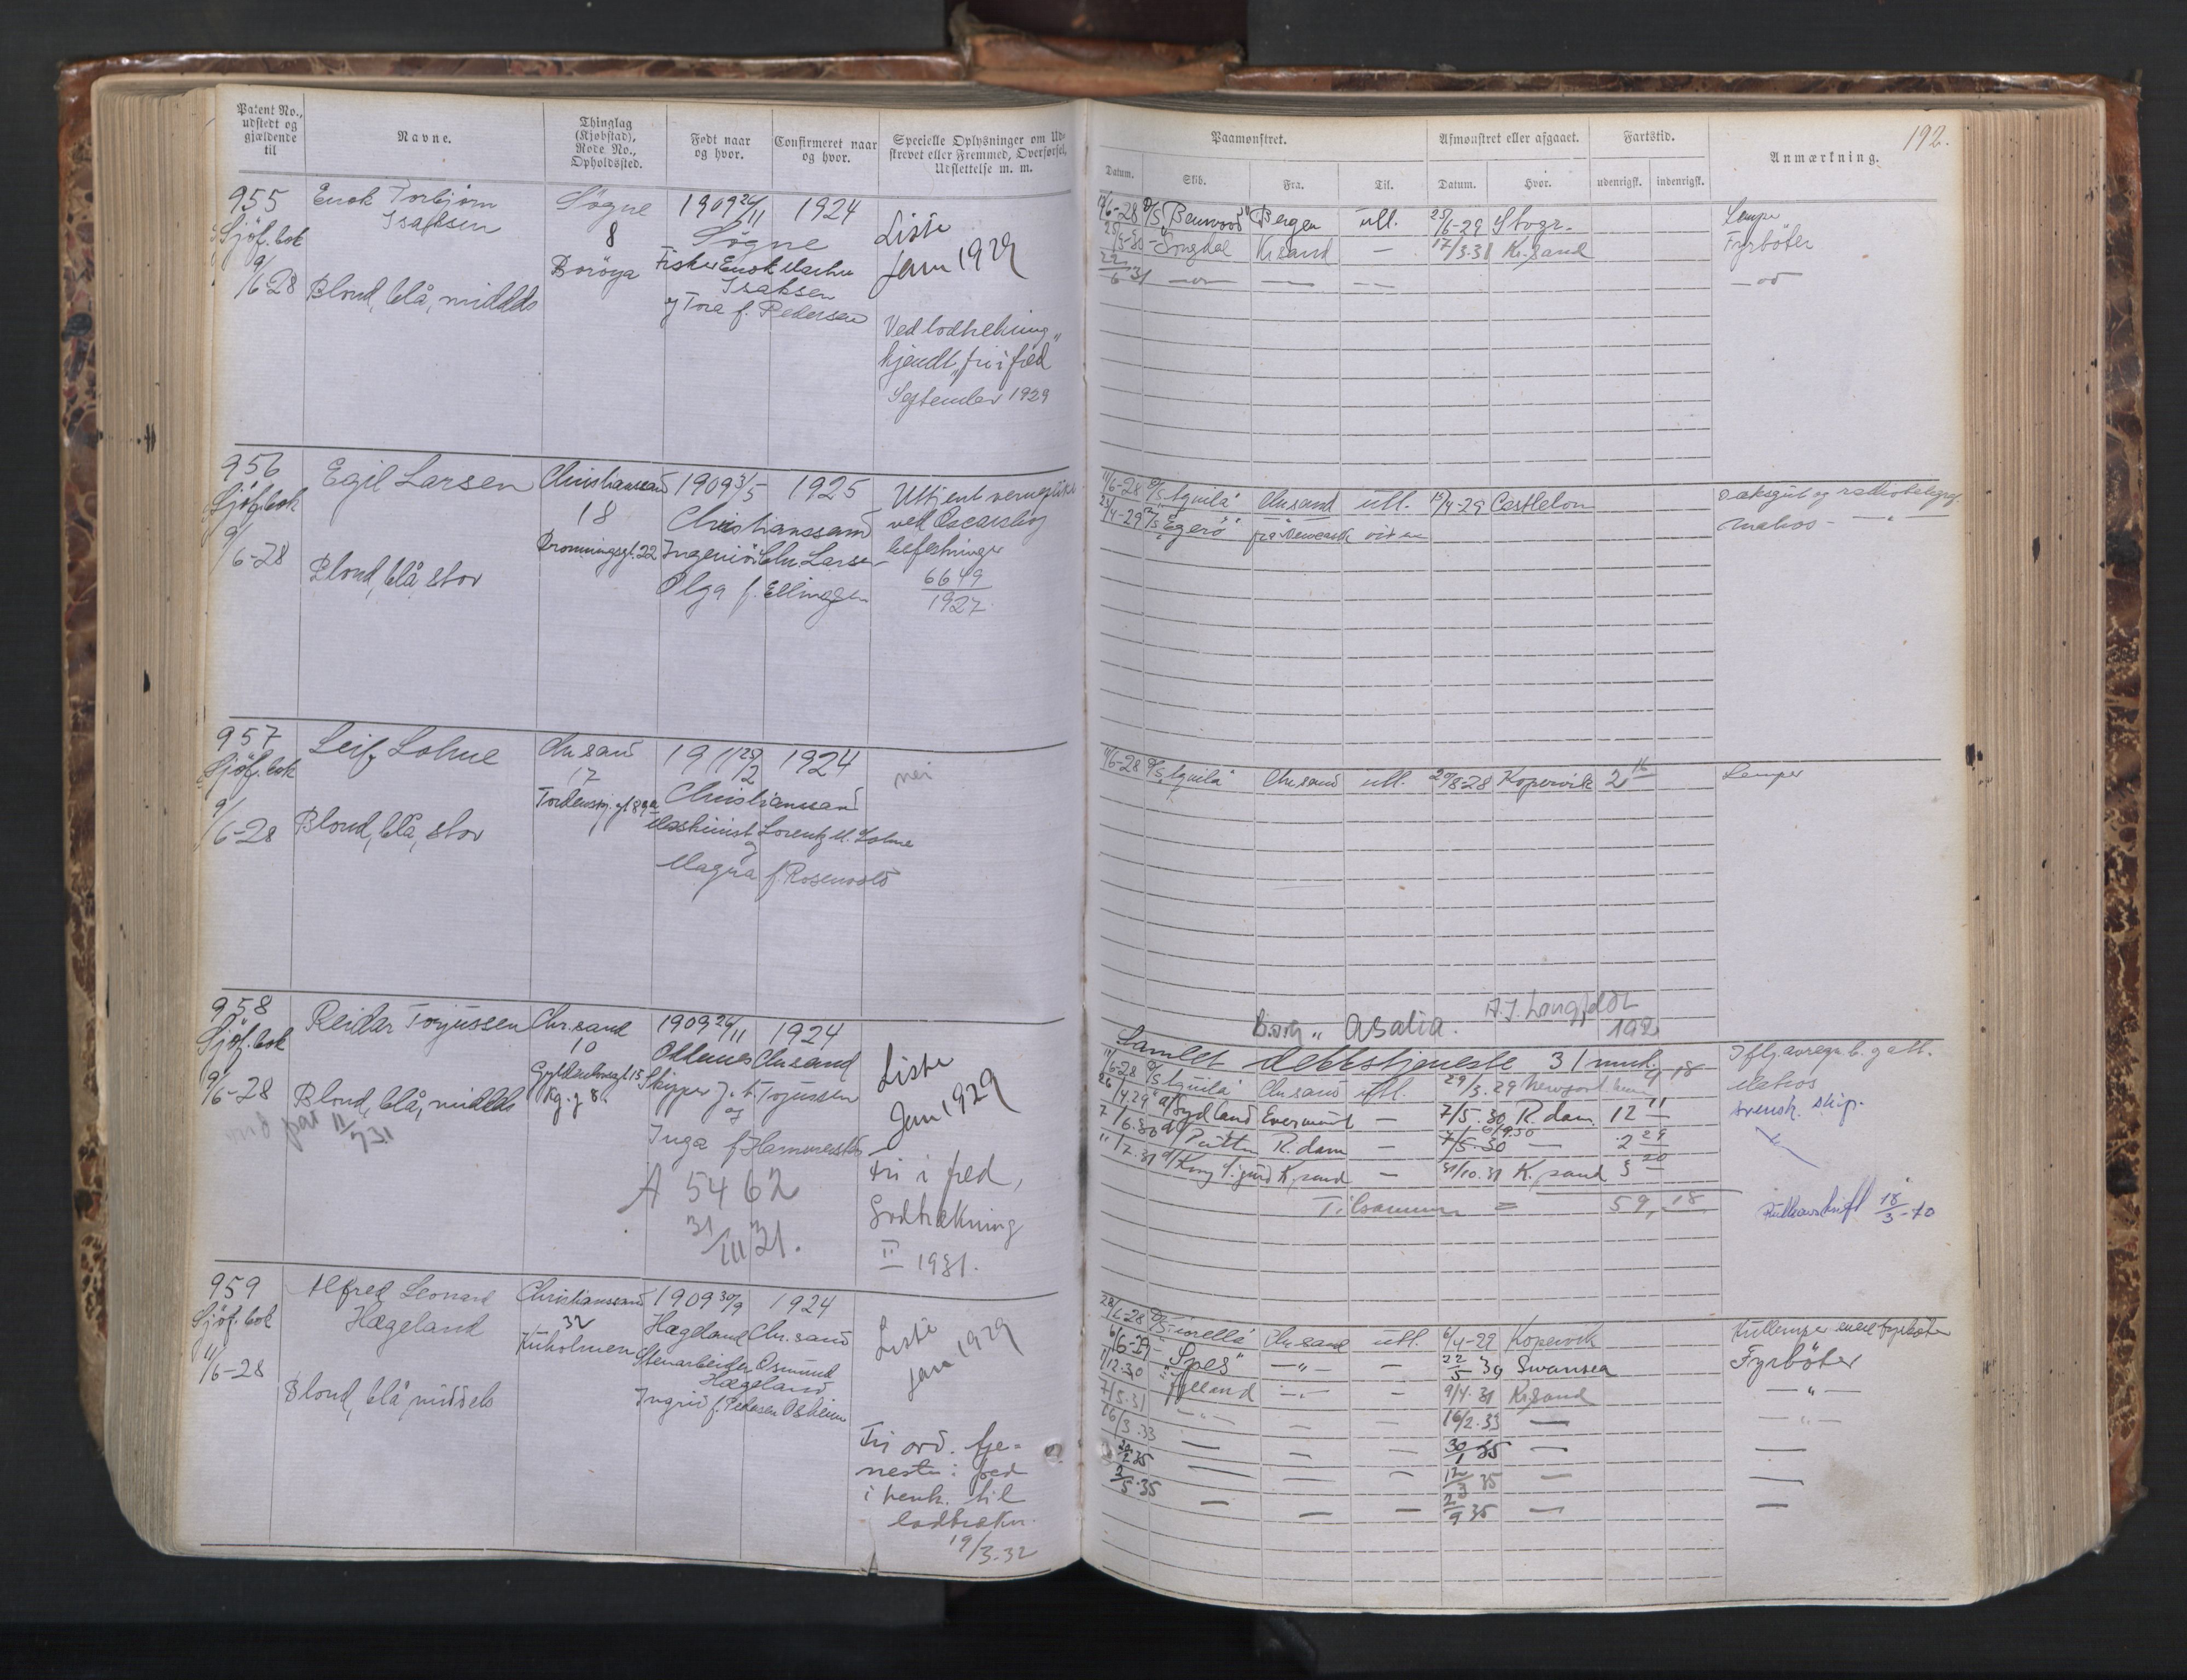 Patent No., udstedt og gjældende til
Navne.
Thinglag (Kjøbstad), Rode No., Opholdssted.
Født naar og hvor.
Confirmeret naar og hvor.
Specielle Oplysninger om Udskrevet eller Fremmed, Overførsel, Udslettelse m. m.
Paamønstret.
Afmønstret eller afgaaet.
Fartstid.
Anmærkning.
192.
Datum.
Skib.
Fra.
Til.
Datum.
Hvor.
udenrigsk.
indenrigsk.
955
Sjöf. bok
9/6-28
Enok Torbjörn
Isaksen
Blond, blå, middels
Søgne
8
Borøya
1909 26/11
1924
Søgne
Fisker Enok Martin
Isaksen
og Tora f. Pedersen
Liste
Jan 1929
Ved lodtrekning
kjendt "fri i fred"
September 1929
D/S "Bennwood" Bergen utl. 25/6-29 Stvgr. Lemper
Songdal Kr.sand — 17/3.31 Kr.sand Fyrbøter
22/6 31 — — —
956
Sjöf. bok
9/6-28
Egil Larsen
Blond, blå, stor
Christianssand
18
Dronningsgt. 22
1909 3/5
1925
Christianssand
Ingeniör Chr. Larsen
Olga f. Ellingsen
Uttjent verneplikt
ved Oscarsborg
befestninger
6649
1927
11/6-28 D/S "Aquila" Chrsand utl. 15/4-29 Castleton
24/4-29 D/S "Egerö" fra Newcastle
Matros
957
Sjöf. bok
9/6-28
Leif Lohne
Blond, blå, stor
Chr.sand
17
Tordenskj. gt 89a
1911 28/2
1924
Christianssand
Maskinist Lorentz M. Lohne
og
Magna f. Rosenvold
nei
11/6-28 D/S "Aquila" Chr.sand utl. 20/8-28 Kopervik 2 16 Lemper
958
Sjöf. bok
9/6-28
Reidar Torjussen
Blond, blå, middels
Chr.sand
10
Gyldenlovesgt 15
Kg. g 8
1909 26/11
1924
Oddernes
Chr.sand
Skipper J. T. Torjussen
og
Inga f. Hammersted
A 5462
31/III 31.
Liste
Jan 1929
Fri i fred,
Lodtrekning
II 1931.
Bark "Asalia".
A. J. Langfeldt
192
Samlet dekkstjeneste 31 mnd.
11/6-28 D/S "Aquila" Chr.sand utl. 29/3.29 Newport 9 18
Matros
26/4.29 Sydland — 7/5.30 R.dam 12 11
svensk. skip.
7/6.30 R.dam — 2 29
11/7.31 Kong Sigurd K.sand — 31/10.31 K.sand 3 20
Tilsammen = 59, 18
18/3-40
959
Sjöf. bok
11/6-28
Alfred Leonard
Hægeland
Blond, blå, middels
Christianssand
32
Kuholmen
1909 30/9
1924
Hægeland
Chr.sand
Stenarbeider Osmund
Hægeland
Ingrid f. Pedersen Osheim
Liste
Jan 1929
Fri ord. tje-
neste i fred
i henh. til
lodtrekn.
19/3.32
Chr.sand utl. 6/4-29 Kopervik
"Spes" — " — — 22/5 30 Swansea Fyrbøter
1/12.30 "Jylland — 9/4.31 Kr.sand — " —
7/5.31 — " — — — 16/2.33 — — " —
16/3.33 — — — 30/1 35 — —
20/2.35 — — — 12/3 35 — —
3/5.35 — — — 2/9 35 — —